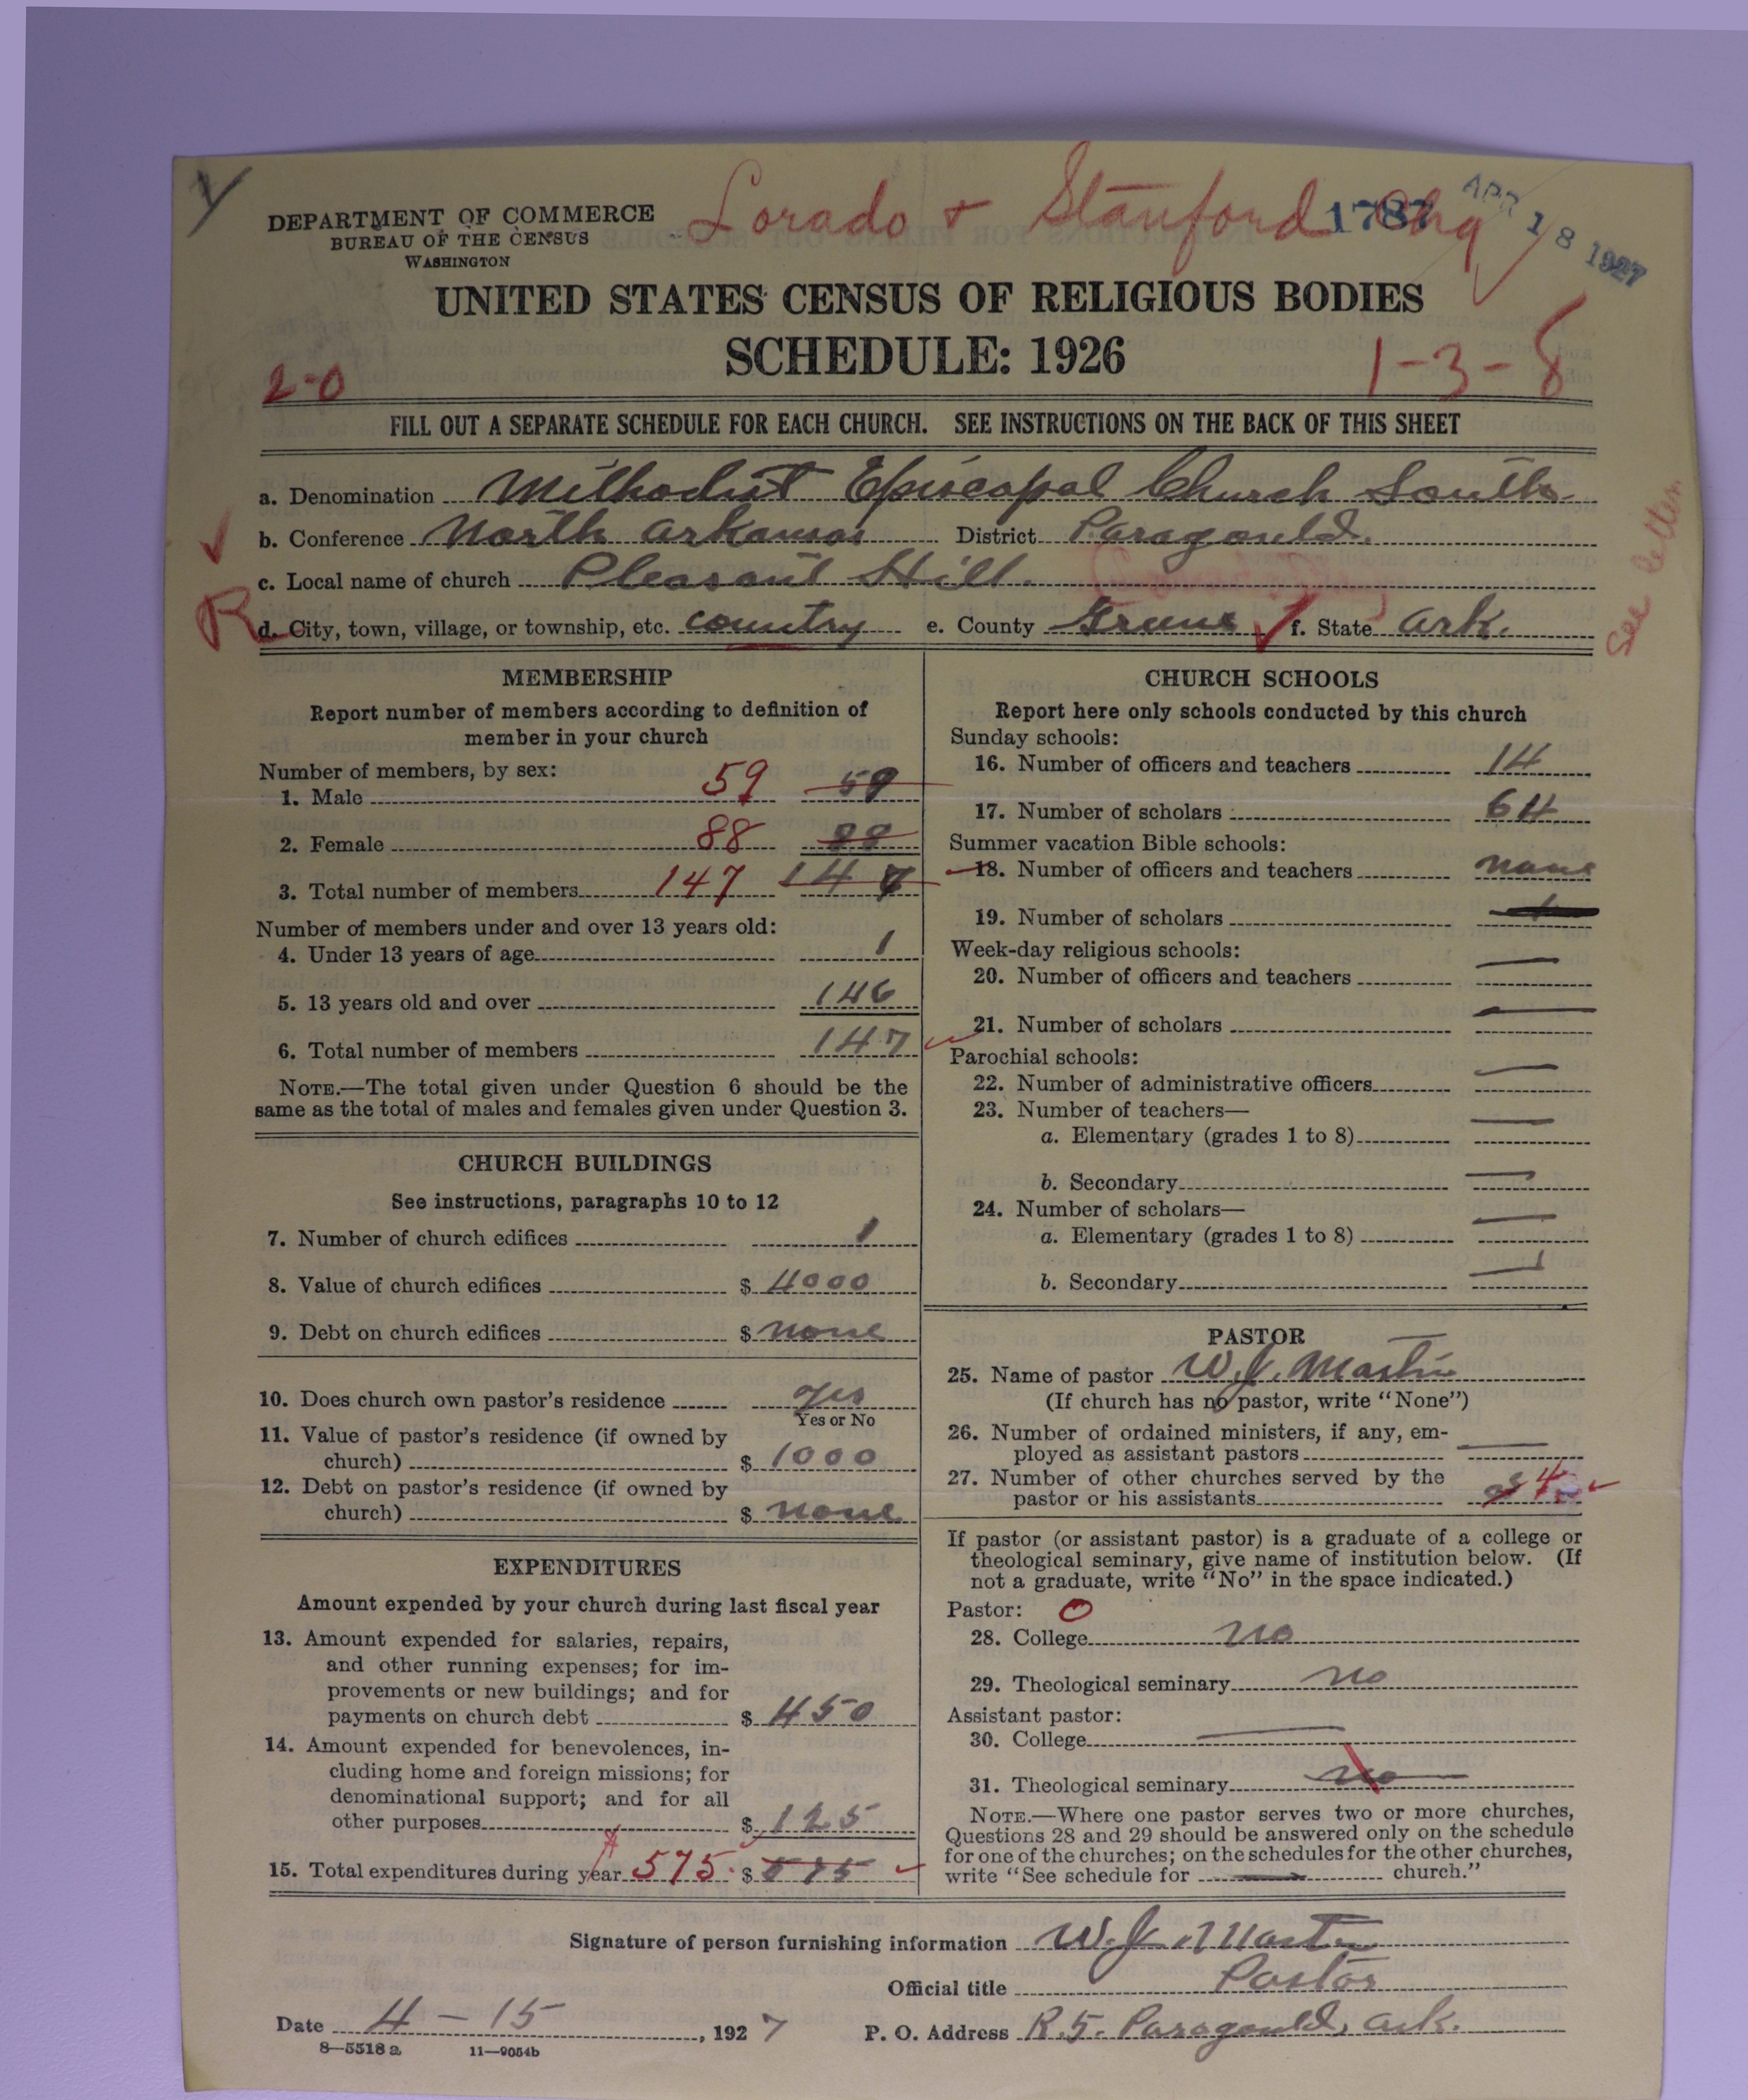 DEPARTMENT OF COMMERCE
BUREAU OF THE CENSUS
WASHINGTON
Lorado + Stanford Chg
1787
APR 18 1927
UNITED STATES CENSUS OF RELIGIOUS BODIES
SCHEDULE: 1926
2-0
1-3-8
FILL OUT A SEPARATE SCHEDULE FOR EACH CHURCH. SEE INSTRUCTIONS ON THE BACK OF THIS SHEET
a. Denomination Methodist Episcopal Church South
b. Conference North Arkansas District Paragould.
c. Local name of church Pleasant Hill.
R
d. City, town, village, or township, etc. country e. County Greene f. State Ark.
See letter
MEMBERSHIP
Report number of members according to definition of
member in your church
Number of members, by sex:
1. Male 59 59
2. Female 88 88
3. Total number of members 147 147
Number of members under and over 13 years old:
4. Under 13 years of age 1
5. 13 years old and over 146
6. Total number of members 147
NOTE.—The total given under Question 6 should be the
same as the total of males and females given under Question 3.
CHURCH BUILDINGS
See instructions, paragraphs 10 to 12
7. Number of church edifices 1
8. Value of church edifices $ 4000
9. Debt on church edifices $ none
10. Does church own pastor's residence yes
Yes or No
11. Value of pastor's residence (if owned by
church) $ 1000
12. Debt on pastor's residence (if owned by
church) $ none
EXPENDITURES
Amount expended by your church during last fiscal year
13. Amount expended for salaries, repairs,
and other running expenses; for im-
provements or new buildings; and for
payments on church debt $ 450
14. Amount expended for benevolences, in-
cluding home and foreign missions; for
denominational support; and for all
other purposes $ 125
15. Total expenditures during year 575 $ 575
CHURCH SCHOOLS
Report here only schools conducted by this church
Sunday schools:
16. Number of officers and teachers 14
17. Number of scholars 64
Summer vacation Bible schools:
18. Number of officers and teachers none
19. Number of scholars
Week-day religious schools:
20. Number of officers and teachers —
21. Number of scholars —
Parochial schools:
22. Number of administrative officers —
23. Number of teachers—
a. Elementary (grades 1 to 8) —
b. Secondary —
24. Number of scholars—
a. Elementary (grades 1 to 8) —
b. Secondary —
PASTOR
25. Name of pastor W.J. Martin
(If church has no pastor, write "None")
26. Number of ordained ministers, if any, em-
ployed as assistant pastors —
27. Number of other churches served by the
pastor or his assistants 4
If pastor (or assistant pastor) is a graduate of a college or
theological seminary, give name of institution below. (If
not a graduate, write "No" in the space indicated.)
Pastor: O
28. College no
29. Theological seminary no
Assistant pastor:
30. College —
31. Theological seminary no
NOTE.—Where one pastor serves two or more churches,
Questions 28 and 29 should be answered only on the schedule
for one of the churches; on the schedules for the other churches,
write "See schedule for — church."
Signature of person furnishing information W.J. Martin
Official title Pastor
Date 4 - 15, 1927 P. O. Address R.5. Paragould, Ark.
8—5518 a 11—9054b